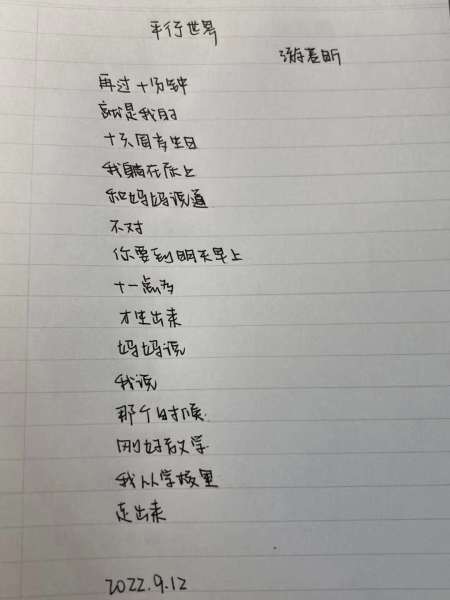 平行世界
游若昕
再过十分钟
就是我的
十六周岁生日
我躺在床上
和妈妈说道
不对
你要到明天早上
十一点多
才生出来
妈妈说
我说
那个时候
刚好放学
我从学校里
走出来
2022.9.12